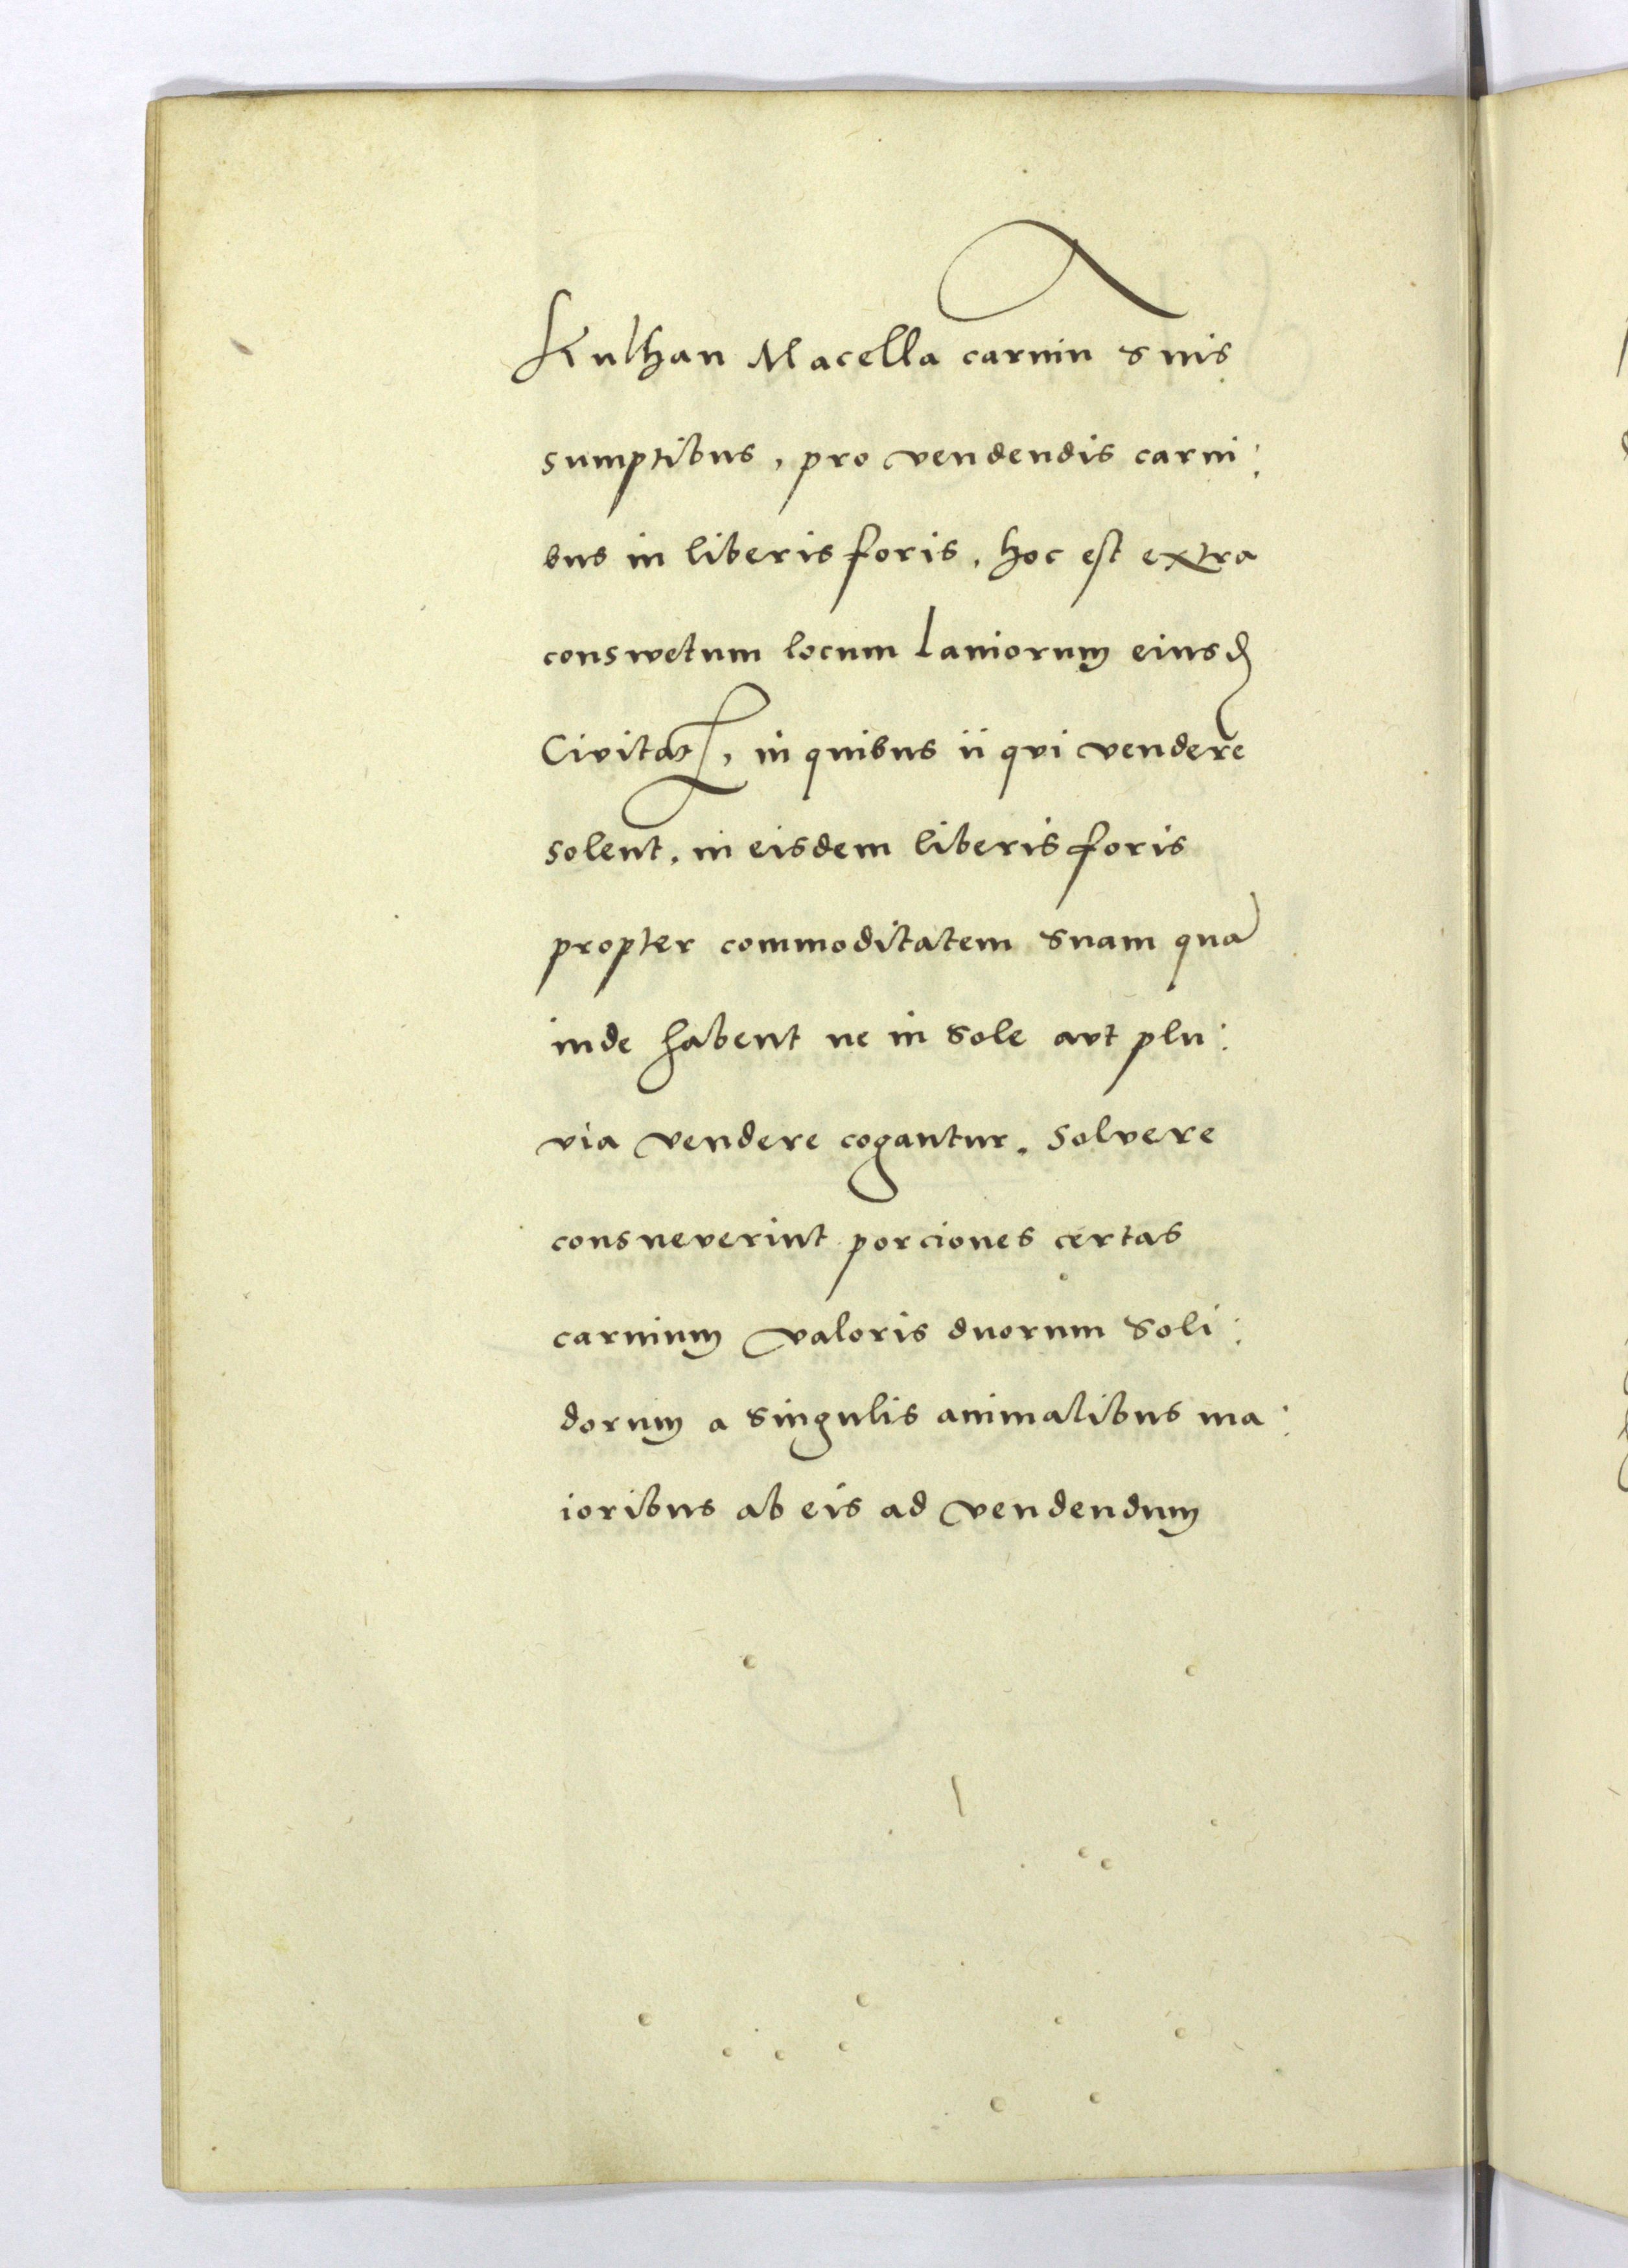 Kulhan Macella carniu suis
sumptibus, pro vendendis carni:
bus in liberis foris, hoc est extra
conswetum locum Laniorum eiusd
Civitat, in quibus ii qui vendere
solent, in eisdem liberis foris
propter commoditatem suam qua
inde habent ne in sole aut plu:
via vendere cogantur, solvere
consueverint porciones certas
carnium valoris duorum soli:
dorum a singulis animalibus ma:
ioribus ab eis ad vendendum